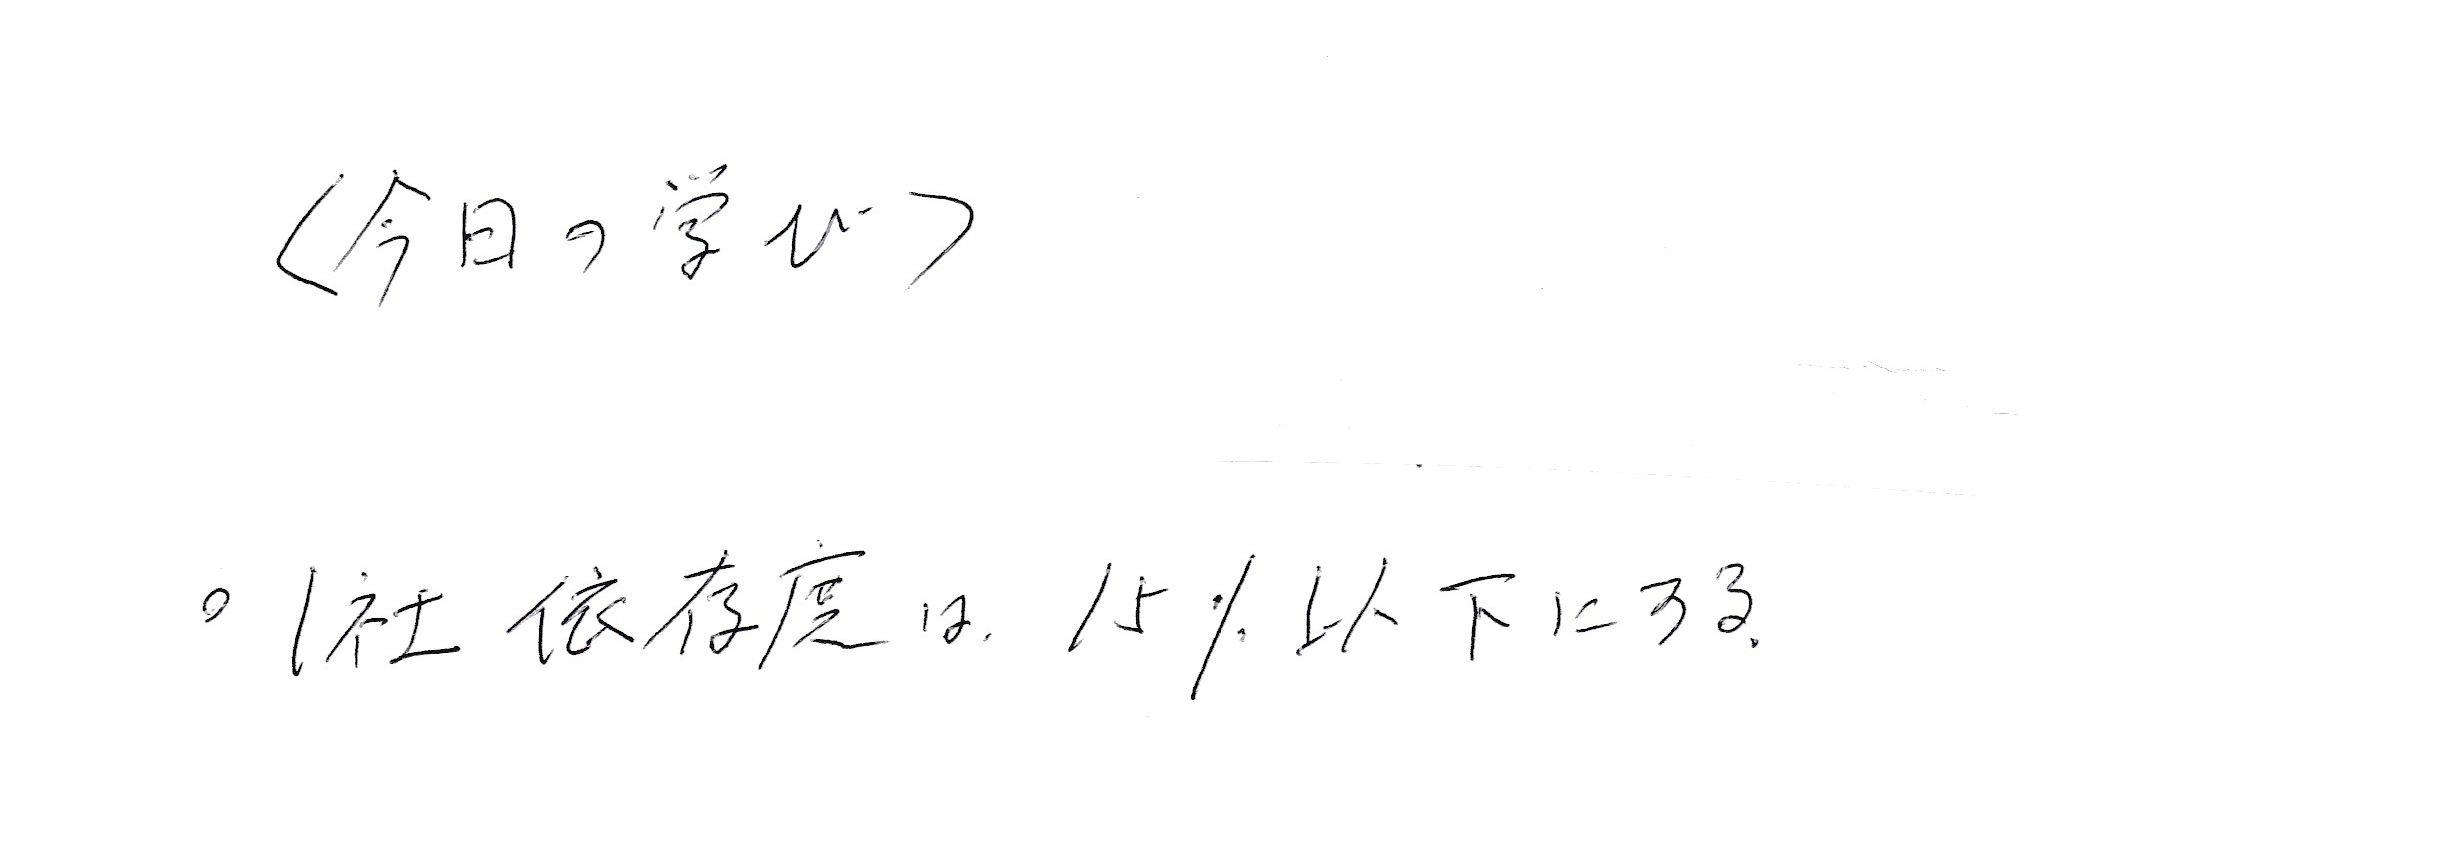 〈今日の学び〉
。1社依存度は、15%以下にする。